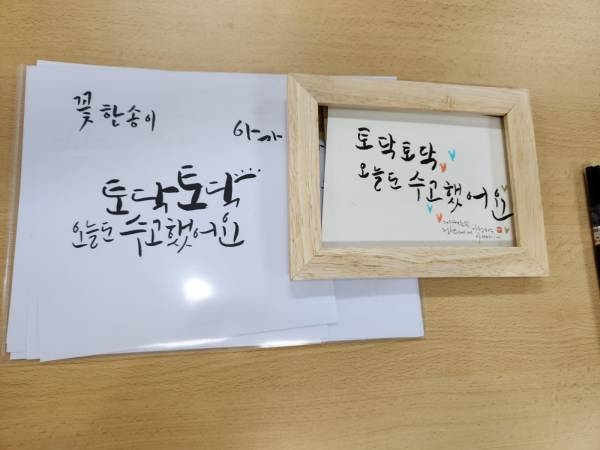 꽃 한송이
아까
토닥토닥....
오늘도 수고했어요
토닥토닥
오늘도 수고했어요